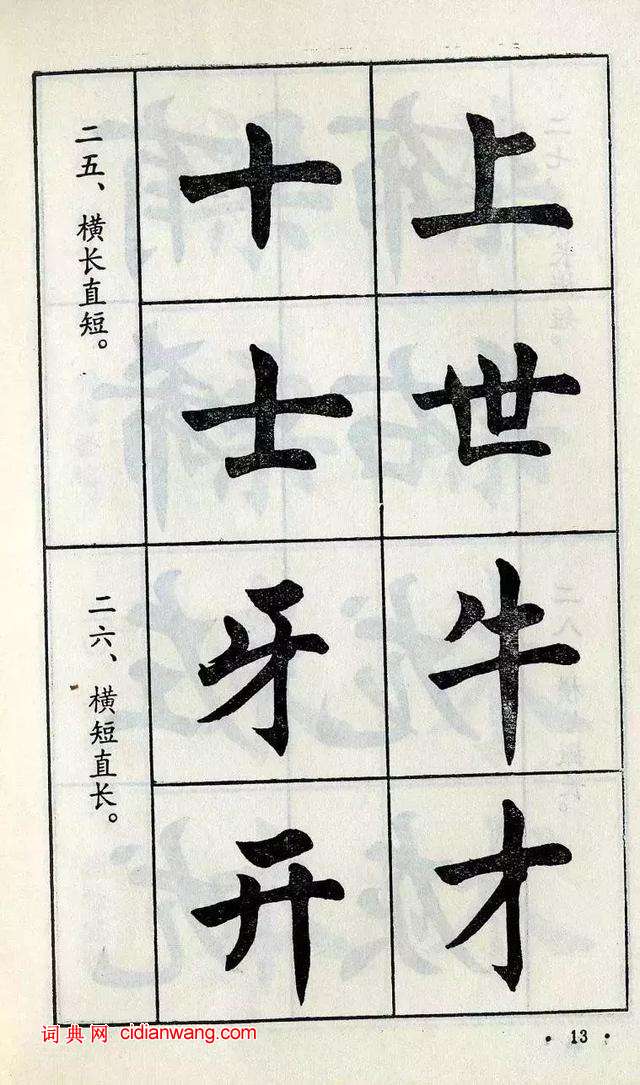 二五、横长直短。
十上
士世
二六、横短直长。
牙牛
开才
词典网 cidianwang.com
·13·